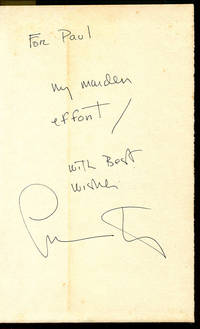 For Paul
my maiden
effort /
with Best
wishes